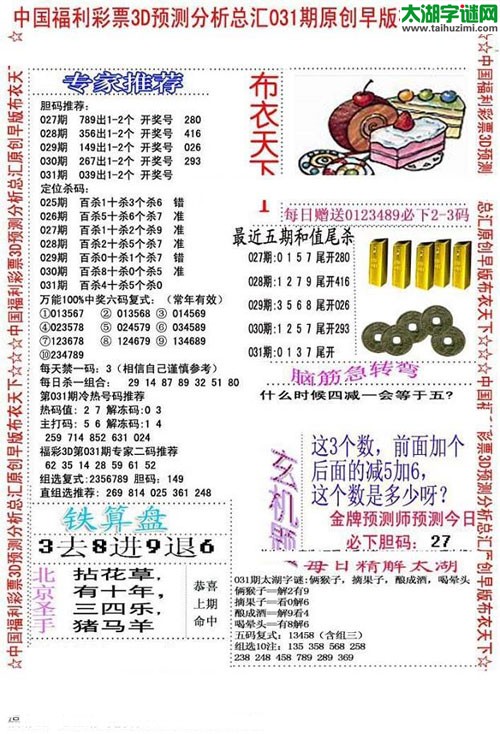 中国福利彩票3D预测分析总汇031期原创早版
太湖字谜网
www.taihuzimi.com
☆中国福利彩票3D预测分析总汇原创早版布衣天下☆☆☆中国福利彩票3D预测分析总汇原创早版布衣天下
专家推荐
胆码推荐:
027期 789出1-2个 开奖号 280
028期 356出1-2个 开奖号 416
029期 149出1-2个 开奖号 026
030期 267出1-2个 开奖号 293
031期 039出1-2个 开奖号
定位杀码:
025期 百杀1十杀3个杀6 错
026期 百杀5十杀6个杀7 准
027期 百杀1十杀2个杀7 准
028期 百杀2十杀5个杀7 准
029期 百杀1十杀0个杀7 错
030期 百杀8十杀0个杀5 准
031期 百杀4十杀5个杀0
万能100%中奖六码复式: (常年有效)
①013567 ②013568 ③014569
④023578 ⑤024579 ⑥034589
⑦123678 ⑧124679 ⑨134689
⑩234789
每天禁一码: 3 (相信自己谨慎参考)
每日杀一组合: 29 14 87 89 32 51 80
第031期冷热号码推荐
热码值: 2 7 解冻码: 0 3
主打码: 5 6 解冻码: 1 4
259 714 852 631 024
福彩3D第031期专家二码推荐
62 35 14 28 59 61 52
组选复式: 2356789 胆码: 149
直组选推荐: 269 814 025 361 248
铁算盘
3去8进9退6
北京圣手
拈花草,
有十年,
三四乐,
猪马羊
恭喜
上期
命中
布衣天下
每日赠送0123489必下2-3码
最近五期和值尾杀
027期:0 1 5 7 尾开280
028期:1 2 7 9 尾开416
029期:3 5 6 8 尾开026
030期:1 2 5 7 尾开293
031期:0 1 3 7 尾开
脑筋急转弯
什么时候四减一会等于五?
玄机题
这3个数，前面加个
后面的减5加6,
这个数是多少呀?
金牌预测师预测今日
必下胆码: 27
每日精解太湖
031期太湖字谜:俩猴子, 摘果子, 酿成酒, 喝晕头
俩猴子＝解2有9
摘果子＝看0解6
酿成酒＝解9看4
喝晕头＝有8解6
五码复式: 13458 (含组三)
组选10注: 135 358 568 258
238 248 458 789 289 369
☆中国福利彩票3D预测
总汇原创早版布衣天下☆☆☆中国福利彩票3D预测分析总汇原创早版布衣天下☆